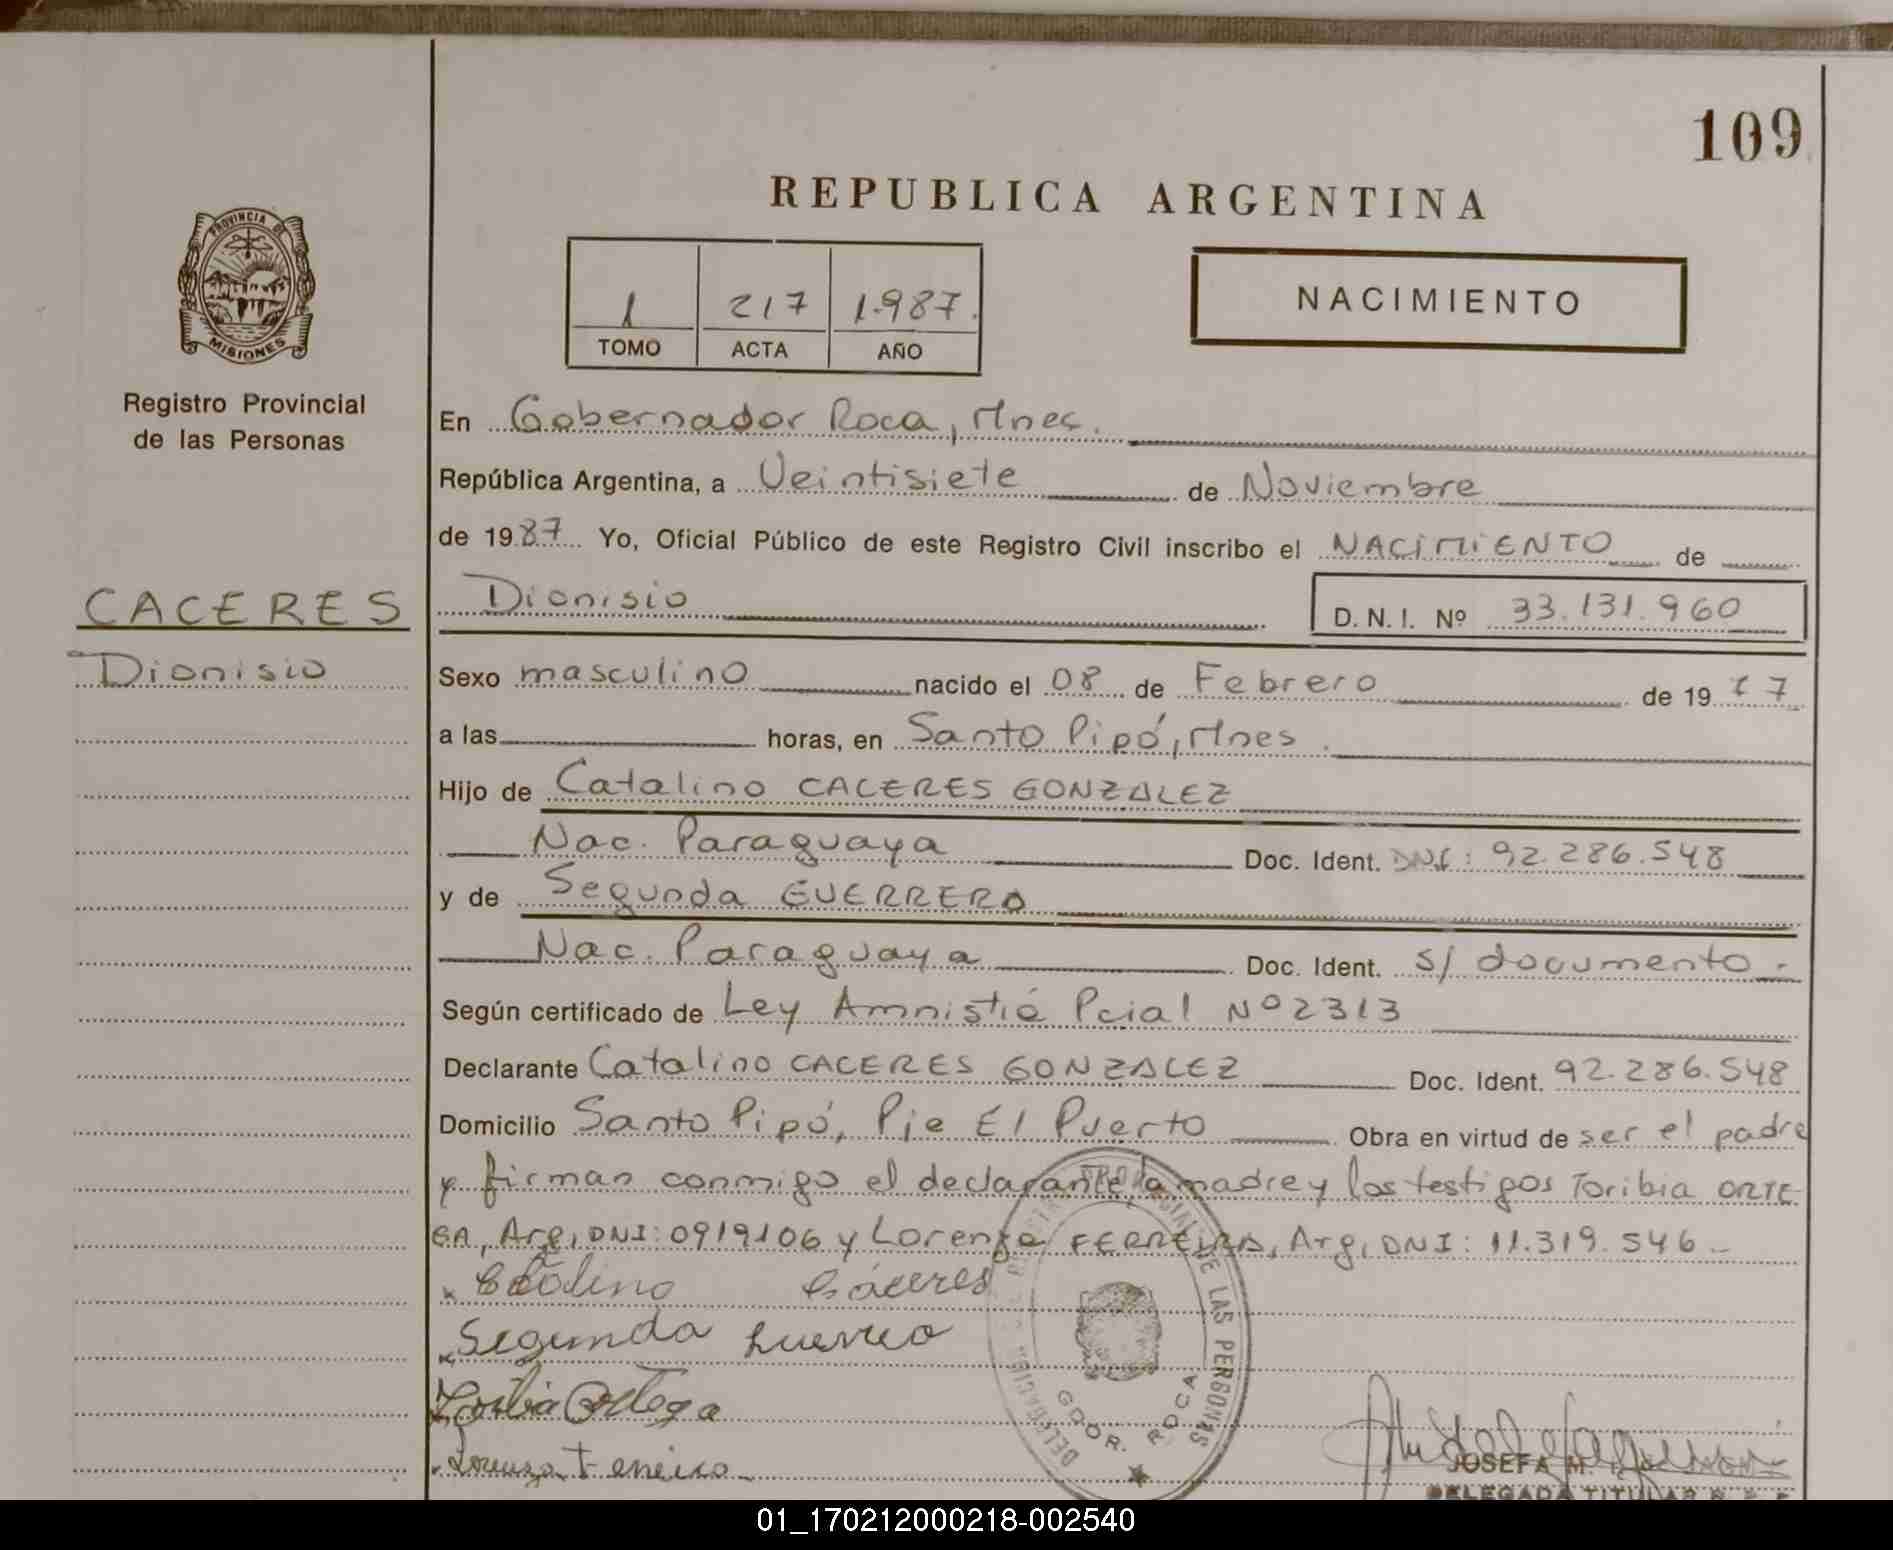 109
REPUBLICA ARGENTINA
PROVINCIA DE
MISIONES
1 217 1.987.
TOMO ACTA AÑO
NACIMIENTO
Registro Provincial
de las Personas
En Gobernador Roca, Mnes.
República Argentina, a Veintisiete de Noviembre
de 1987 Yo, Oficial Público de este Registro Civil inscribo el NACIMIENTO de
CACERES
Dionisio
Dionisio D. N. I. Nº 33.131.960
Sexo masculino nacido el 08 de Febrero de 19 77
a las horas, en Santo Pipó, Mnes.
Hijo de Catalino CACERES GONZALEZ
Nac. Paraguaya Doc. Ident. DNI: 92.286.548
y de Segunda GUERRERO
Nac. Paraguaya Doc. Ident. s/ documento.
Según certificado de Ley Amnistía Pcial Nº 2313
Declarante Catalino CACERES GONZALEZ Doc. Ident. 92.286.548
Domicilio Santo Pipó, Pje El Puerto Obra en virtud de ser el padre
y firman conmigo el declarante, la madre y los testigos Toribia ORTE-
GA, Arg, DNI: 0919106 y Lorenza FERREIRA, Arg, DNI: 11.319.546
Catalino Cáceres
Segunda
Toribia Ortega
Lorenza
DELEGACION
DE LAS PERSONAS
GDOR. ROCA
JOSEFA M.
DELEGADA TITULAR R. P. P.
01_170212000218-002540